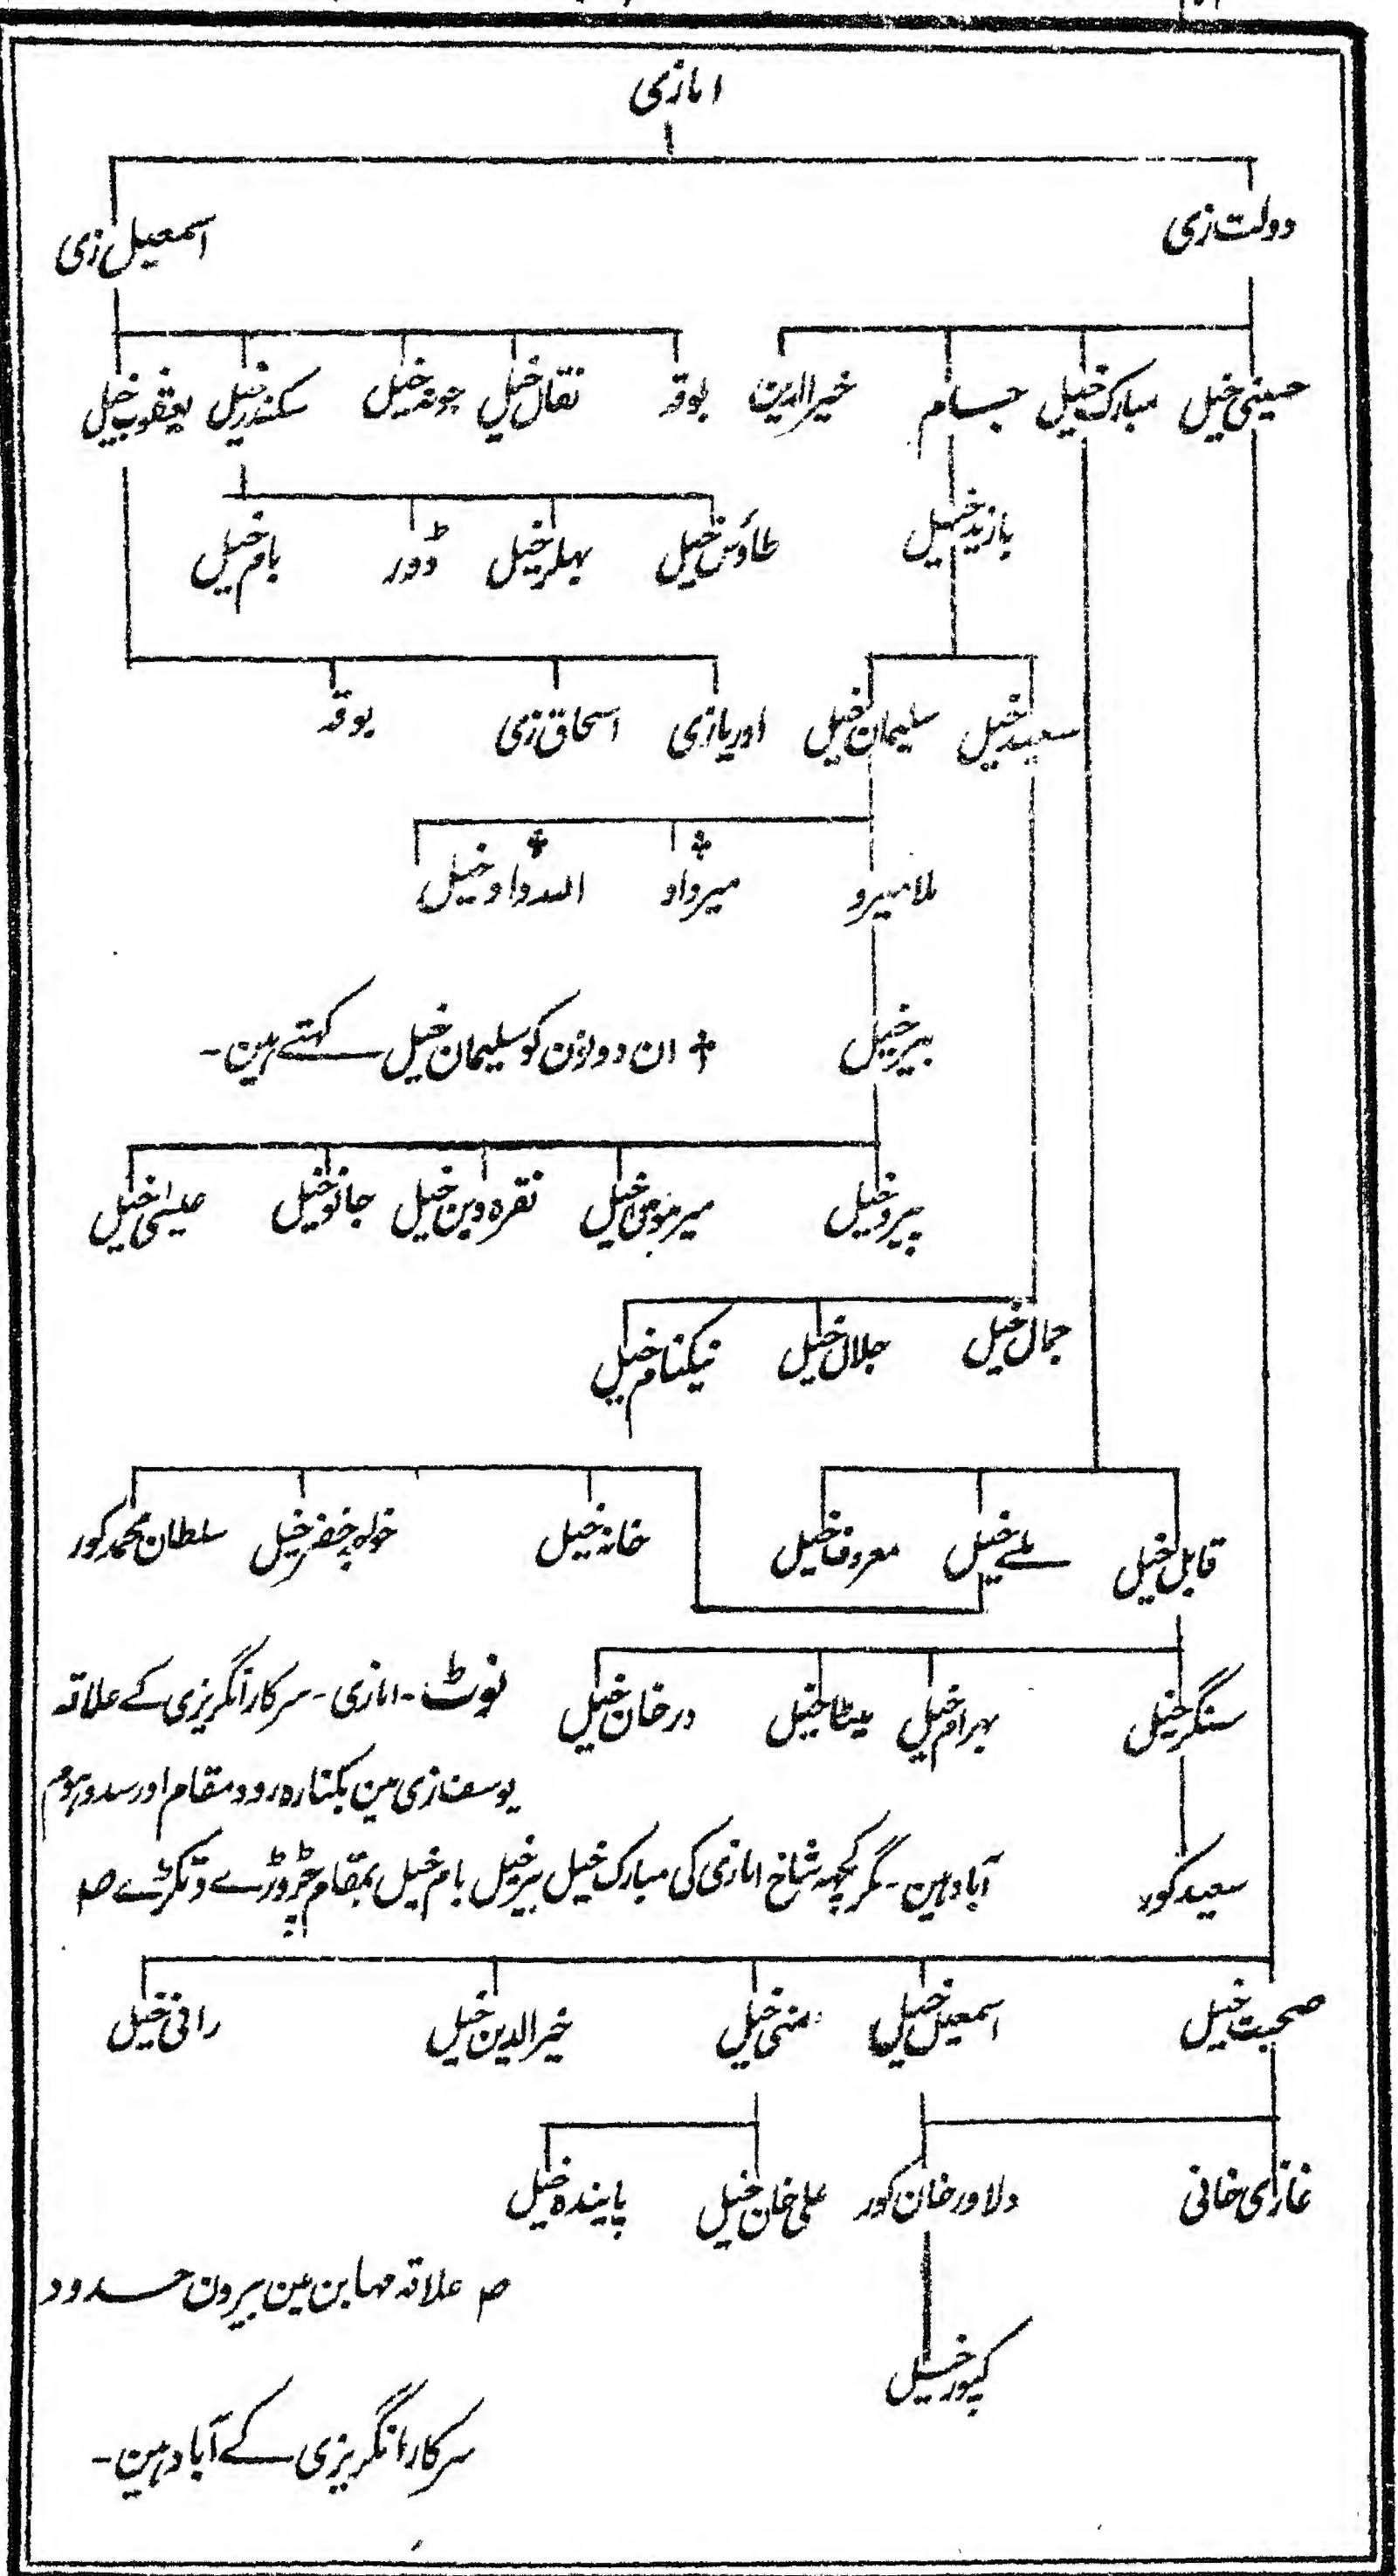 امازی
دولت زی اسمعیل زی
حسینی خیل مبارک خیل حسام خیرالدین بوقہ نقال خیل جونہ خیل سکندر خیل یعقوب خیل
بازید خیل طاؤس خیل بہلر خیل ڈور بام خیل
سعید خیل سلیمان خیل اوریازی اسحاق زی بوقہ
ملا میرو میرداو اللہ داو خیل
بیر خیل ☨ ان دونون کو سلیمان خیل کہتے ہین۔
پیرو خیل میر مومی خیل نقرہ دین خیل جانو خیل عیسٰی خیل
جمال خیل جلال خیل نیکنام خیل
قابل خیل ملے خیل معروف خیل خانہ خیل خواجہ خضر خیل سلطان محمد کور
سنگر خیل بہرام خیل میٹا خیل درخان خیل نوٹ۔ امازی۔ سرکار انگریزی کے علاقہ
یوسف زی مین بکنارہ رود مقام اور سدہوم
سعید کور آباد ہین۔ مگر کچہہ شاخ امازی کی مبارک خیل بیر خیل بام خیل بمقام چروڑے و نگرے ص
صحبت خیل اسمعیل خیل منی خیل خیرالدین خیل رانی خیل
غازی خانی دلاور خان کور علی خان خیل پایندہ خیل
ص علاقہ مہابن مین بیرون حدود
کپور خیل
سرکار انگریزی کے آباد ہین۔